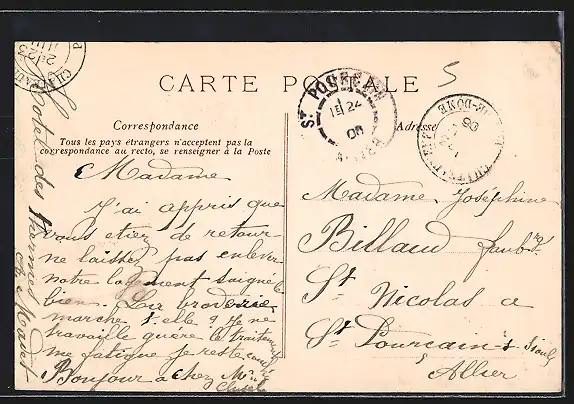 CARTE POSTALE
5
Correspondance
Tous les pays étrangers n'acceptent pas la
correspondance au recto, se renseigner à la Poste
Adresse
Madame
J'ai appris que
vous etiez de retour
ne laissez pas enlever
notre logement soignez
bien. La broderie
marche t. elle ? Je ne
travaille guère le traitement
me fatigue je reste
Bonjour a chez Mr
Hotel des Thermes
Madame Joséphine
Billaud faubrg
St Nicolas a
St Pourçain s Sioule
Allier
ST POURCAIN
15 24
08
ALLIER
PUY-DE-DOME